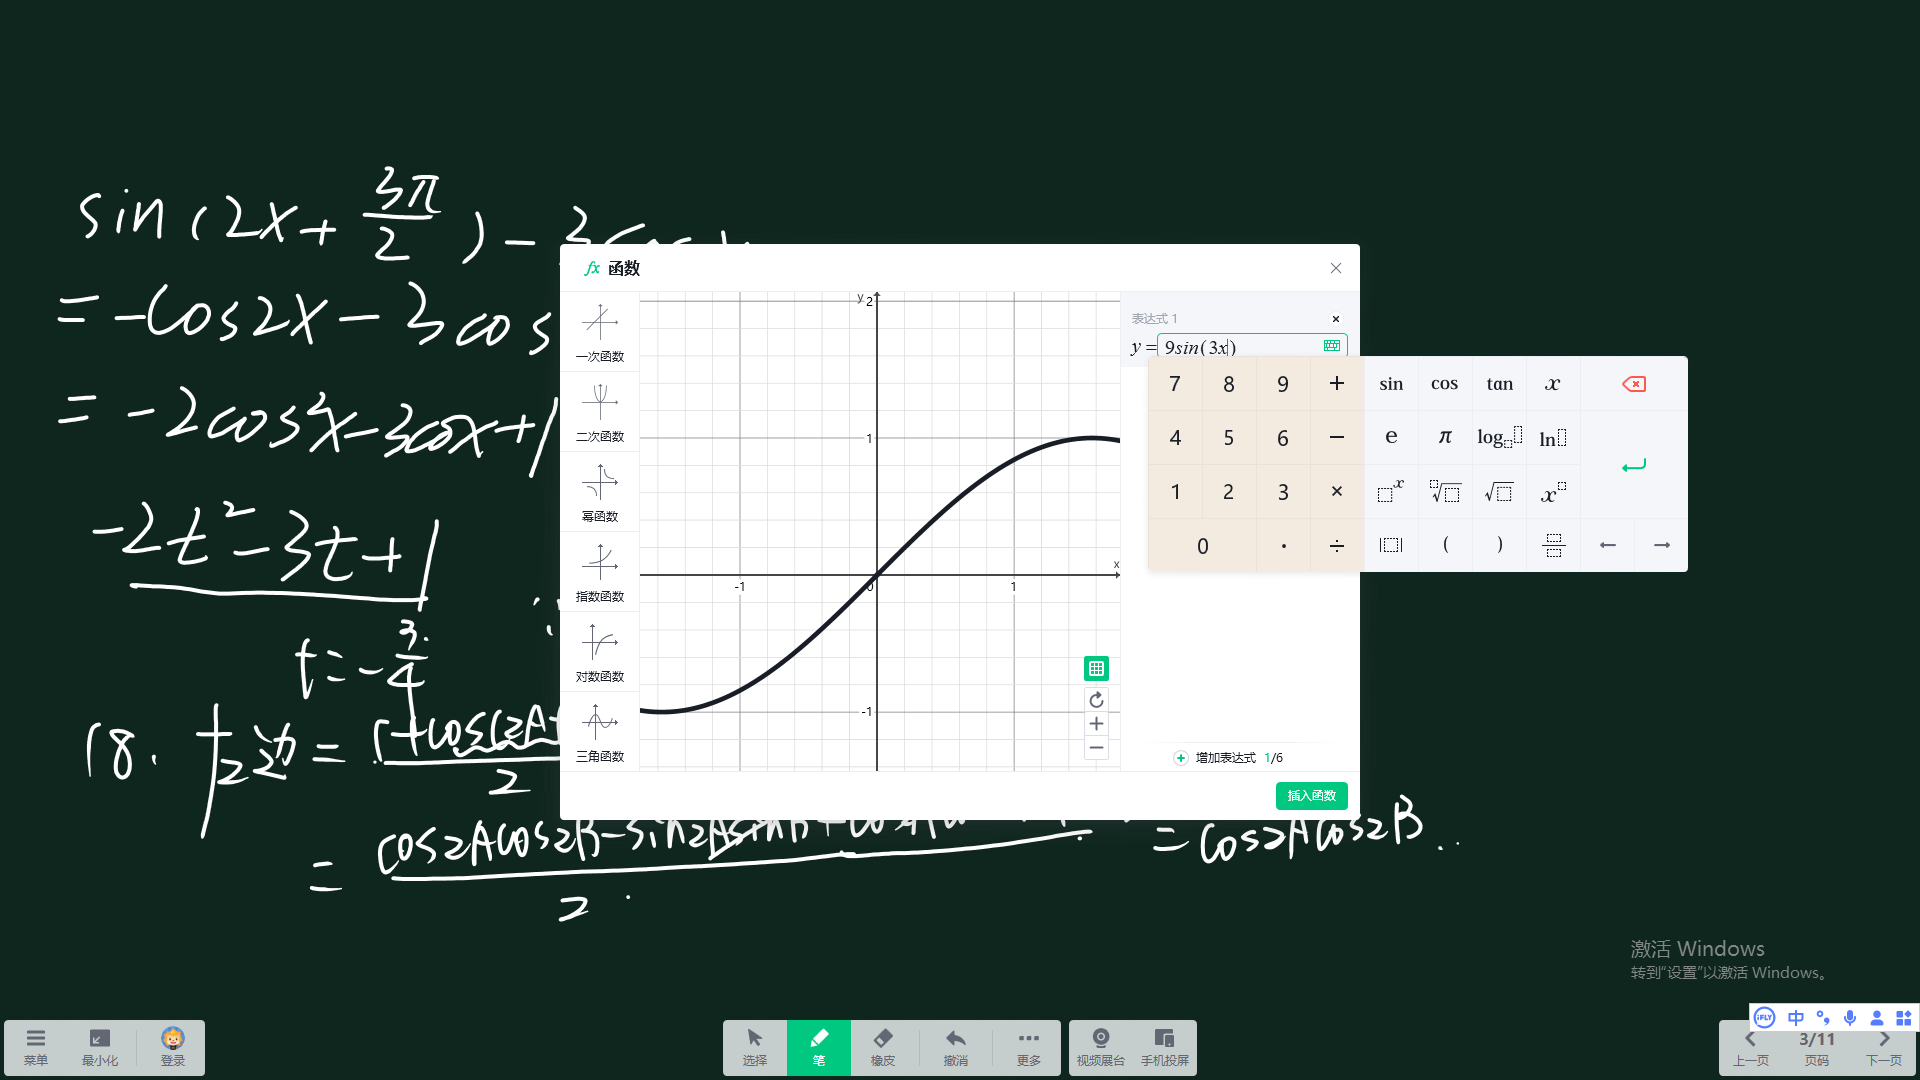 sin(2x+3π/2)-3cosx
=-cos2x-3cos
=-2cos²x-3cosx+1
-2t²-3t+1
t=-3/4
18. 左边=1+cos(2A+
2
=cos2Acos2B-sin2Asin
2
=cos2Acos2B
fx 函数
一次函数
二次函数
幂函数
指数函数
对数函数
三角函数
y
2
1
-1
0
1
x
-1
表达式 1
y=9sin(3x)
7 8 9 + sin cos tan x
4 5 6 − e π log ln
1 2 3 × x √ √ x
0 · ÷ | | ( ) ← →
增加表达式 1/6
插入函数
激活 Windows
转到“设置”以激活 Windows。
iFLY 中
菜单 最小化 登录
选择 笔 橡皮 撤消 更多
视频展台 手机投屏
3/11
上一页 页码 下一页